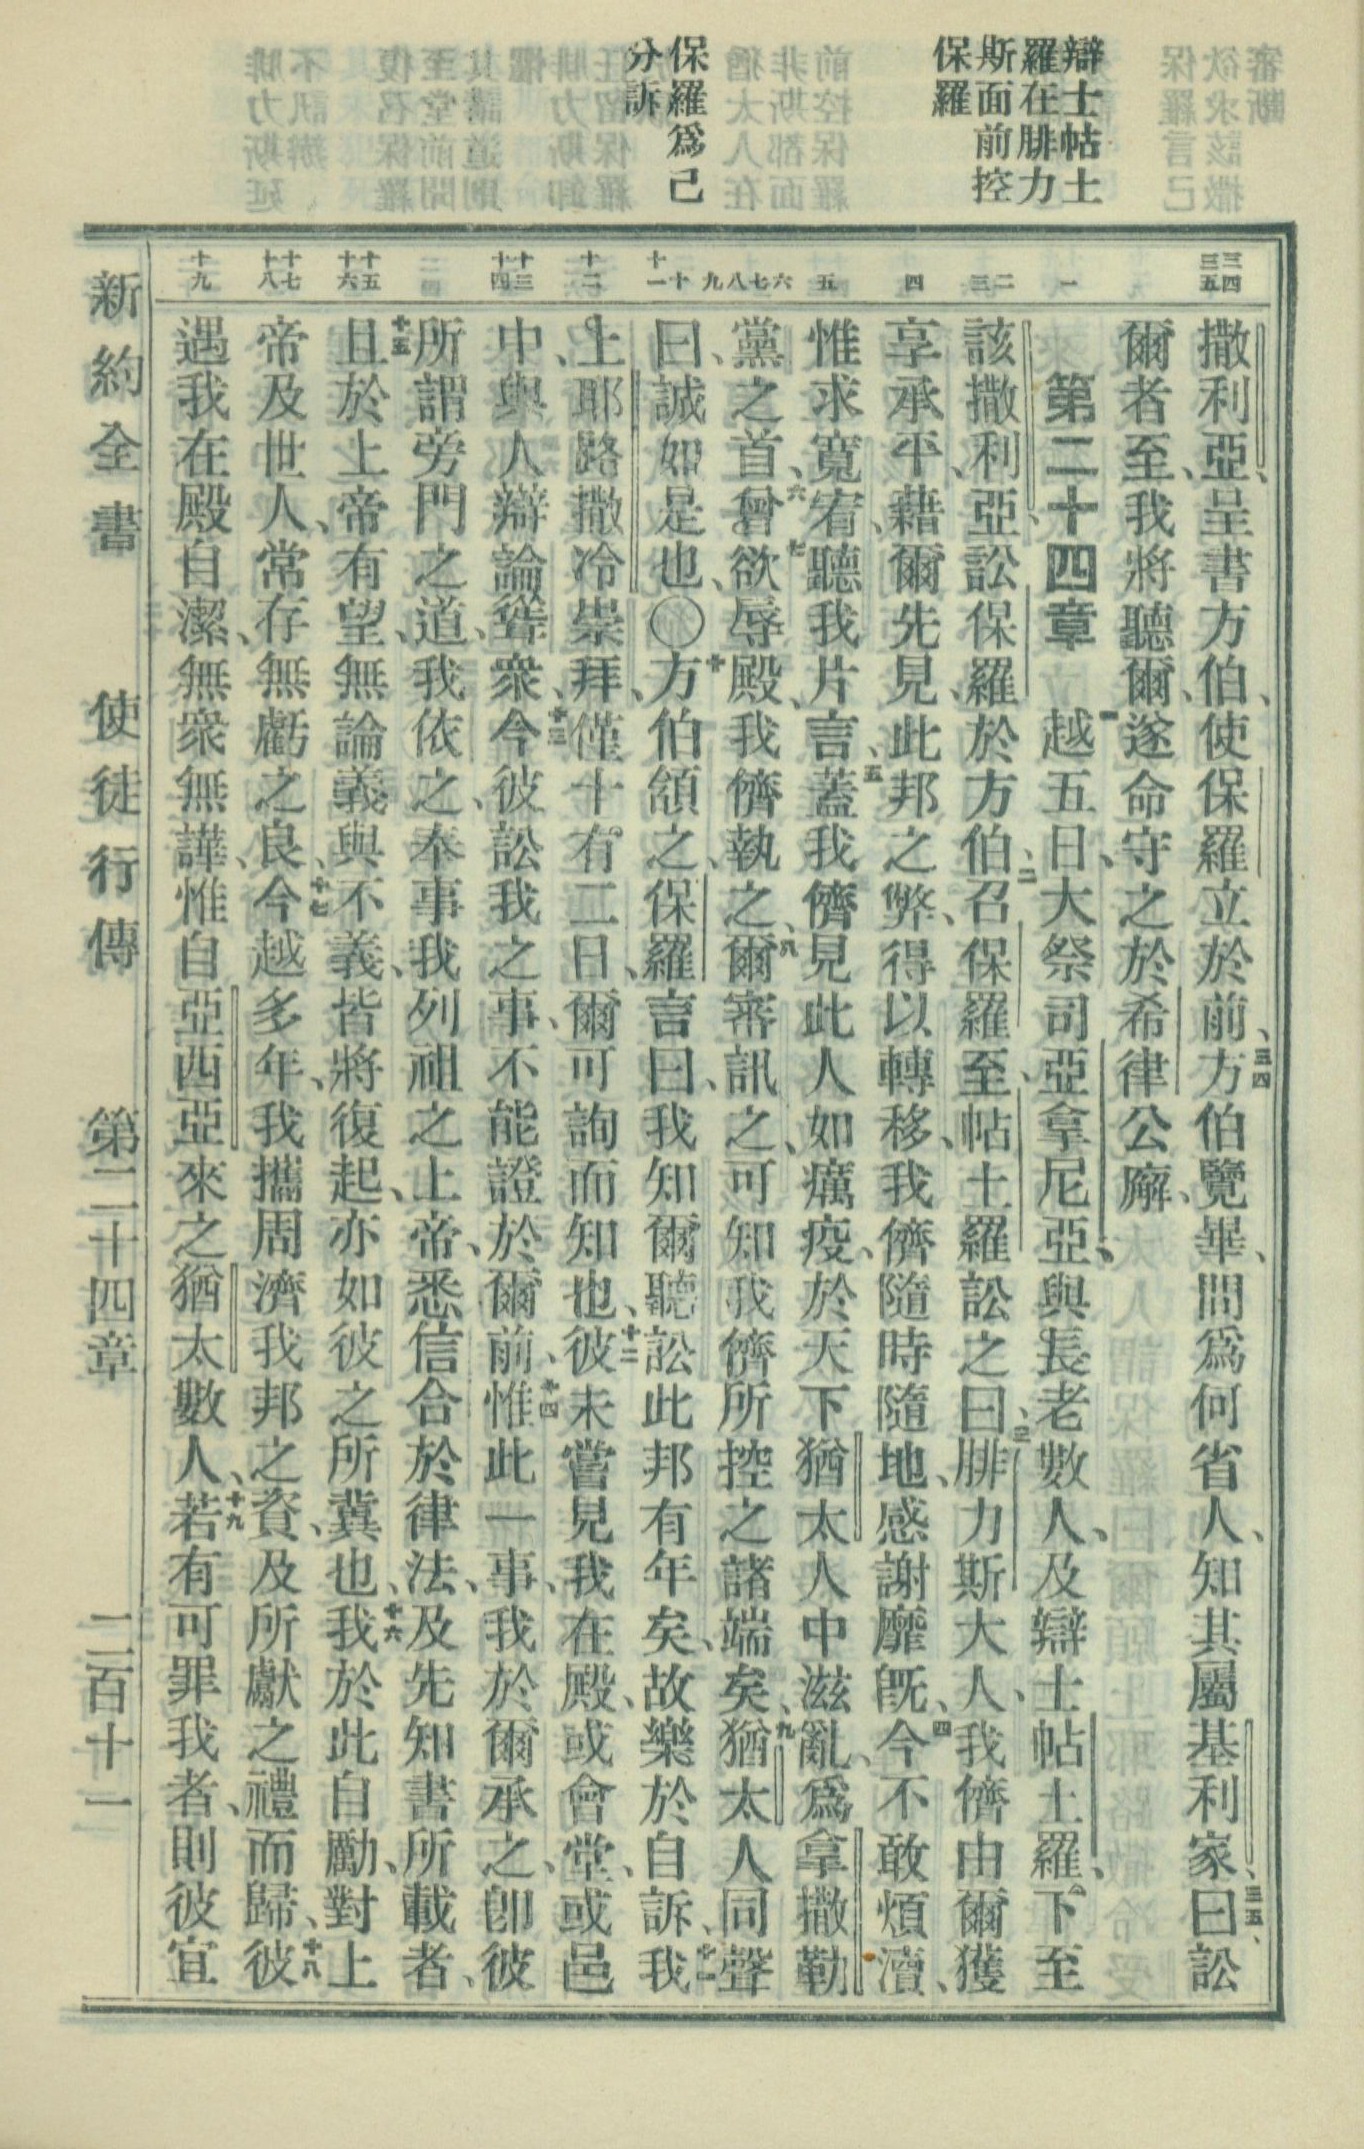 辯士帖土
羅在腓力
斯面前控
保羅
保羅爲己
分訴
三四 三五
一
二 三
四
五
六 七 八 九
十 十一
十二
十三 十四
十五 十六
十七 十八
十九
撒利亞、呈書方伯、使保羅立於前、三四方伯覽畢、問爲何省人、知其屬基利家、三五曰、訟
爾者至、我將聽爾、遂命守之於希律公廨、
第二十四章 一越五日、大祭司亞拿尼亞、與長老數人、及辯士帖土羅、下至
該撒利亞、訟保羅於方伯、二召保羅至、帖土羅訟之曰、三腓力斯大人、我儕由爾獲
享承平、藉爾先見、此邦之弊、得以轉移、我儕隨時隨地、感謝靡旣、四今不敢煩瀆、
惟求寬宥、聽我片言、五蓋我儕見此人如癘疫、於天下猶太人中滋亂、爲拿撒勒
黨之首、六曾欲辱殿、我儕執之、八爾審訊之、可知我儕所控之諸端矣、九猶太人同聲
曰、誠如是也、〇十方伯頷之、保羅言曰、我知爾聽訟此邦有年矣、故樂於自訴、十一我
上耶路撒冷崇拜、僅十有二日、爾可詢而知也、十二彼未嘗見我在殿、或會堂、或邑
中、與人辯論聳衆、十三今彼訟我之事、不能證於爾前、十四惟此一事、我於爾承之、卽彼
所謂旁門之道、我依之、奉事我列祖之上帝、悉信合於律法、及先知書所載者、
十五且於上帝有望、無論義與不義、皆將復起、亦如彼之所冀也、十六我於此自勵、對上
帝及世人、常存無虧之良、十七今越多年、我攜周濟我邦之資、及所獻之禮而歸、十八彼
遇我在殿自潔、無衆無譁、惟自亞西亞來之猶太數人、十九若有可罪我者、則彼宜
新約全書 使徒行傳 第二十四章 二百十一